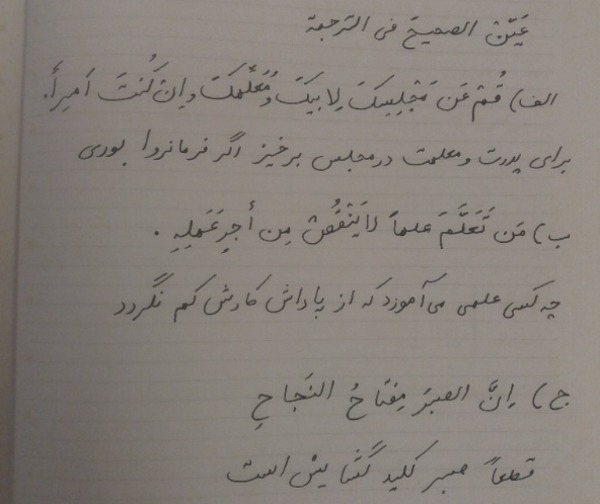 عَیِّن الصحیحَ فی الترجمة
الف) قُمْ عَن مَجْلِسِکَ لِابیکَ و مُعَلِّمِکَ و اِن کُنتَ اَمیراً.
برای پدرت و معلمت در مجلس برخیز اگر فرمانروا بودی
ب) مَن تَعَلَّمَ علماً لا یَنْقُصُ مِن أجرِ عَمَلِهِ .
چه کسی علمی می آموزد که از پاداش کارش کم نگردد
ج) اِنَّ الصبرَ مِفتَاحُ النَجاحِ
قطعاً صبر کلید گشایش است